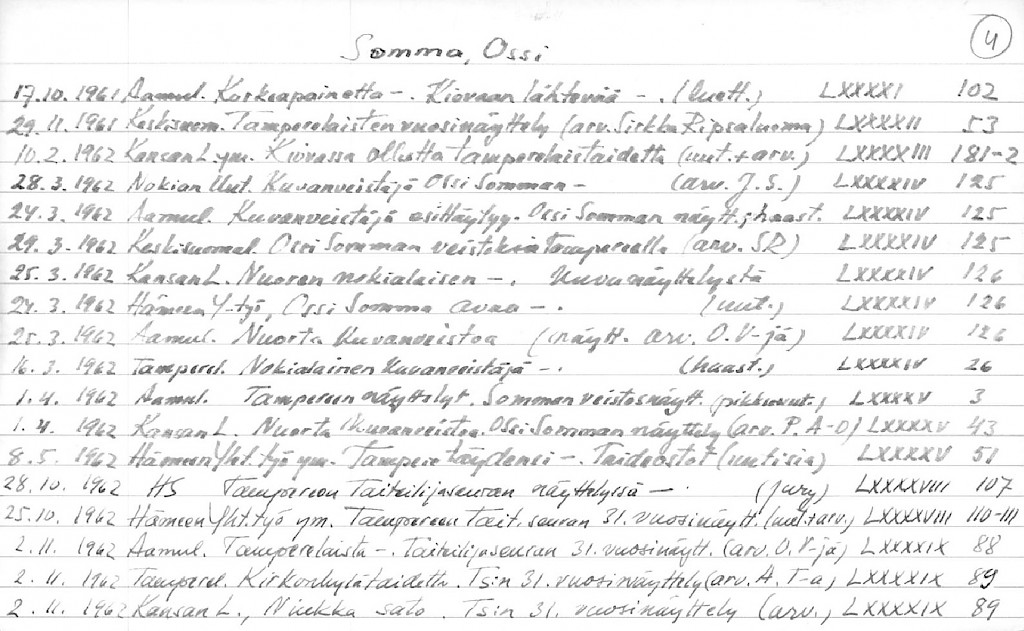 4
Somma, Ossi
17.10.1961 Aamul. Korkeapainetta -. Kiovaan lähteviä -. (luett.) LXXXXI 102
29.11.1961 Keskisuom. Tamperelaisten vuosinäyttely (arv. Sirkka Ripsaluoma) LXXXXII 53
10.2.1962 Kansan L. ym. Kiovassa ollutta tamperelaistaidetta (uut. + arv.) LXXXXIII 181-2
28.3.1962 Nokian Uut. Kuvanveistäjä Ossi Somman - (arv. J.S.) LXXXXIV 125
24.3.1962 Aamul. Kuvanveistäjä esittäytyy. Ossi Somman näytt.; haast. LXXXXIV 125
29.3.1962 Keskisuomal. Ossi Somman veistoksia Tampereella (arv. SR) LXXXXIV 125
25.3.1962 Kansan L. Nuoren nokialaisen -. Kuvanäyttelystä LXXXXIV 126
24.3.1962 Hämeen Y-työ, Ossi Somma avaa -. (uut.) LXXXXIV 126
25.3.1962 Aamul. Nuorta kuvanveistoa (näytt. arv. O.V-jä) LXXXXIV 126
16.3.1962 Tamperel. Nokialainen kuvanveistäjä -. (haast.) LXXXXIV 26
1.4.1962 Aamul. Tampereen näyttelyt. Somman veistosnäytt. (pikkuuut.) LXXXXV 3
1.4.1962 Kansan L. Nuorta kuvanveistoa. Ossi Somman näyttely (arv. P. A-o) LXXXXV 43
8.5.1962 Hämeen Yht.työ ym. Tampere täydensi -. Taideostot (uutisia) LXXXXV 51
28.10.1962 HS Tampereen Taiteilijaseuran näyttelyssä -. (jury) LXXXXVIII 107
25.10.1962 Hämeen Yht.työ ym. Tampereen Tait.seuran 31. vuosinäytt. (uut. + arv.) LXXXXVIII 110-111
2.11.1962 Aamul. Tamperelaista -. Taiteilijaseuran 31. vuosinäytt. (arv. O.V-jä) LXXXXIX 88
2.11.1962 Tamperel. Kirkonkylätaidetta. Ts:n 31. vuosinäyttely (arv. A. T-a) LXXXXIX 89
2.11.1962 Kansan L., Niukka sato. Ts:n 31. vuosinäyttely (arv.) LXXXXIX 89